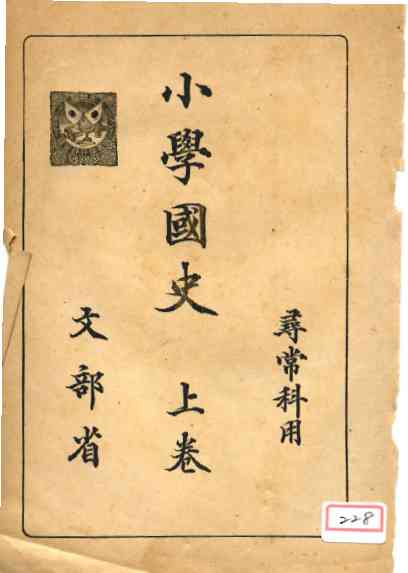 尋常科用
小學國史 上卷
文部省
228